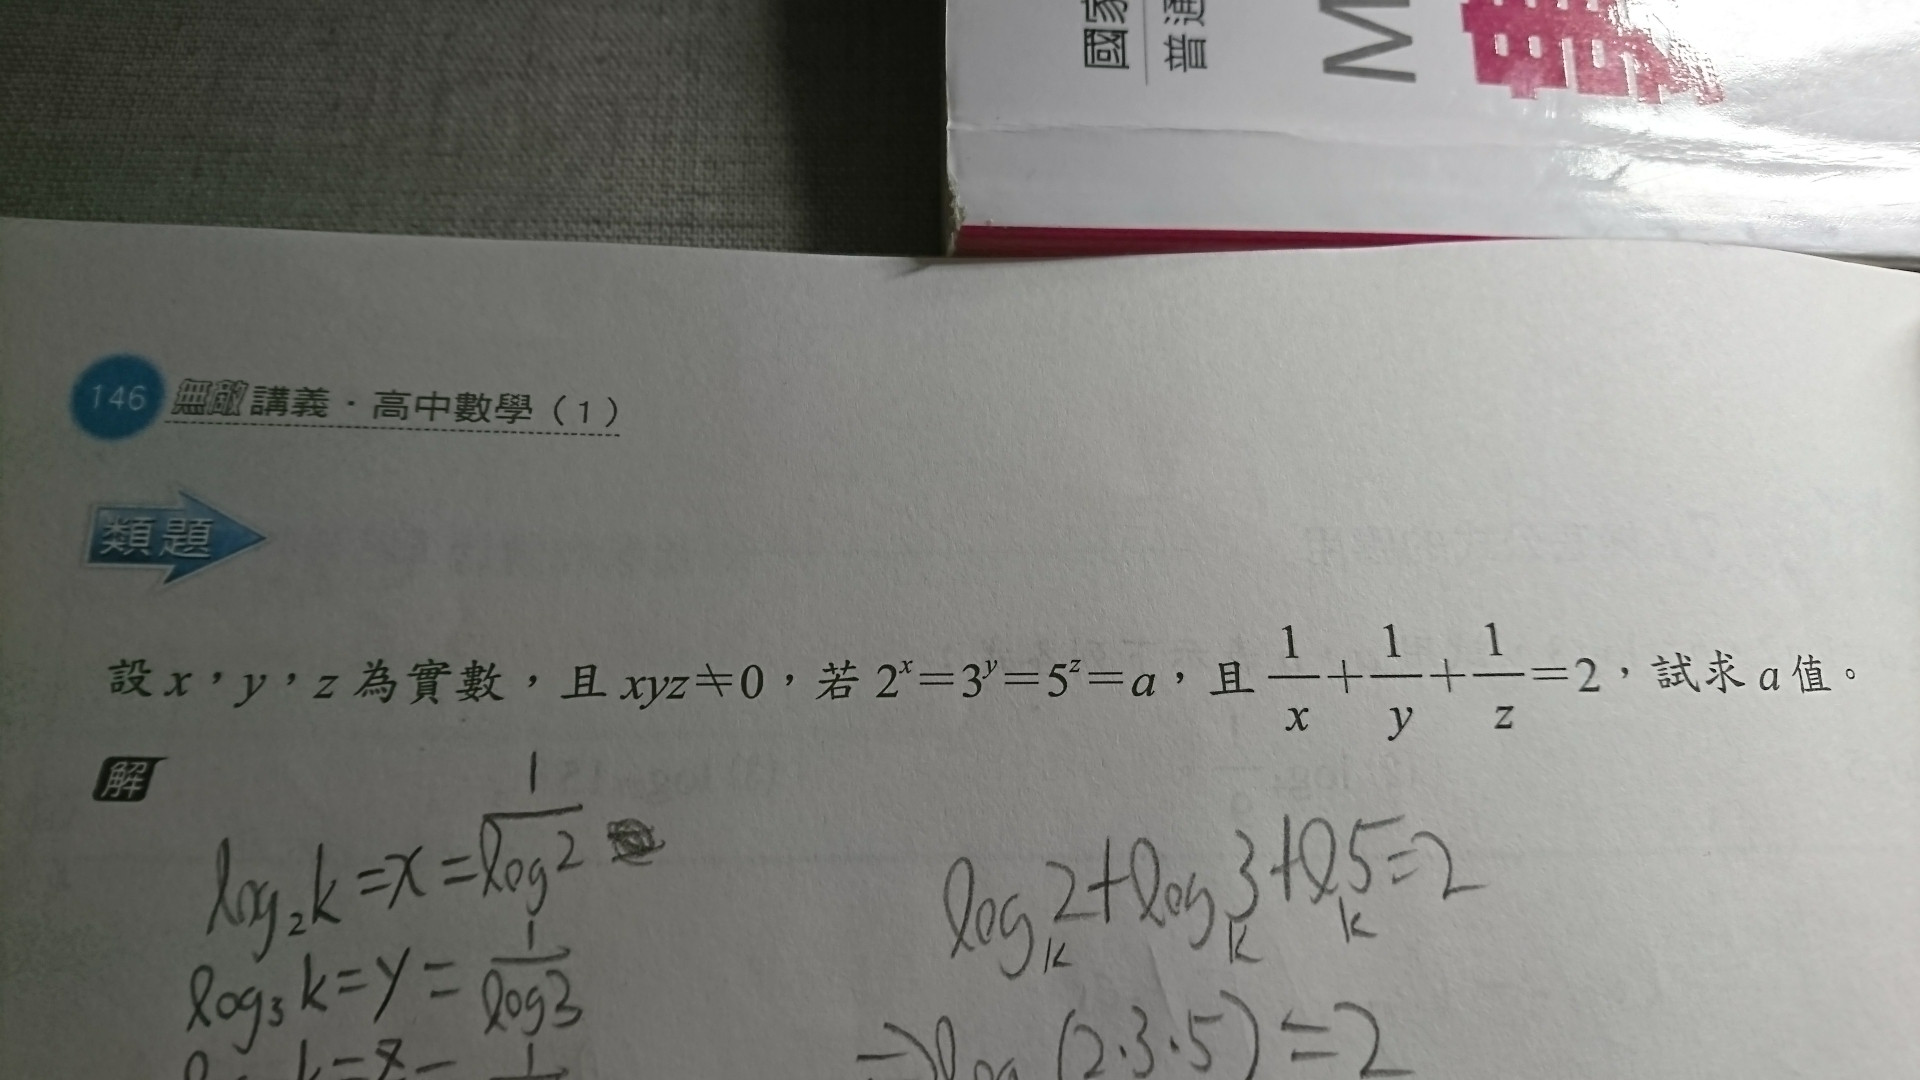 國家
普通
M
146 無敵講義・高中數學（1）
類題
設 x，y，z 為實數，且 xyz≠0，若 2^x＝3^y＝5^z＝a，且 1/x＋1/y＋1/z＝2，試求 a 值。
解
log₂k=x=1/log2
log₃k=y=1/log3
k=z=1
log_k 2+log_k 3+l_k 5=2
⇒log(2·3·5)=2